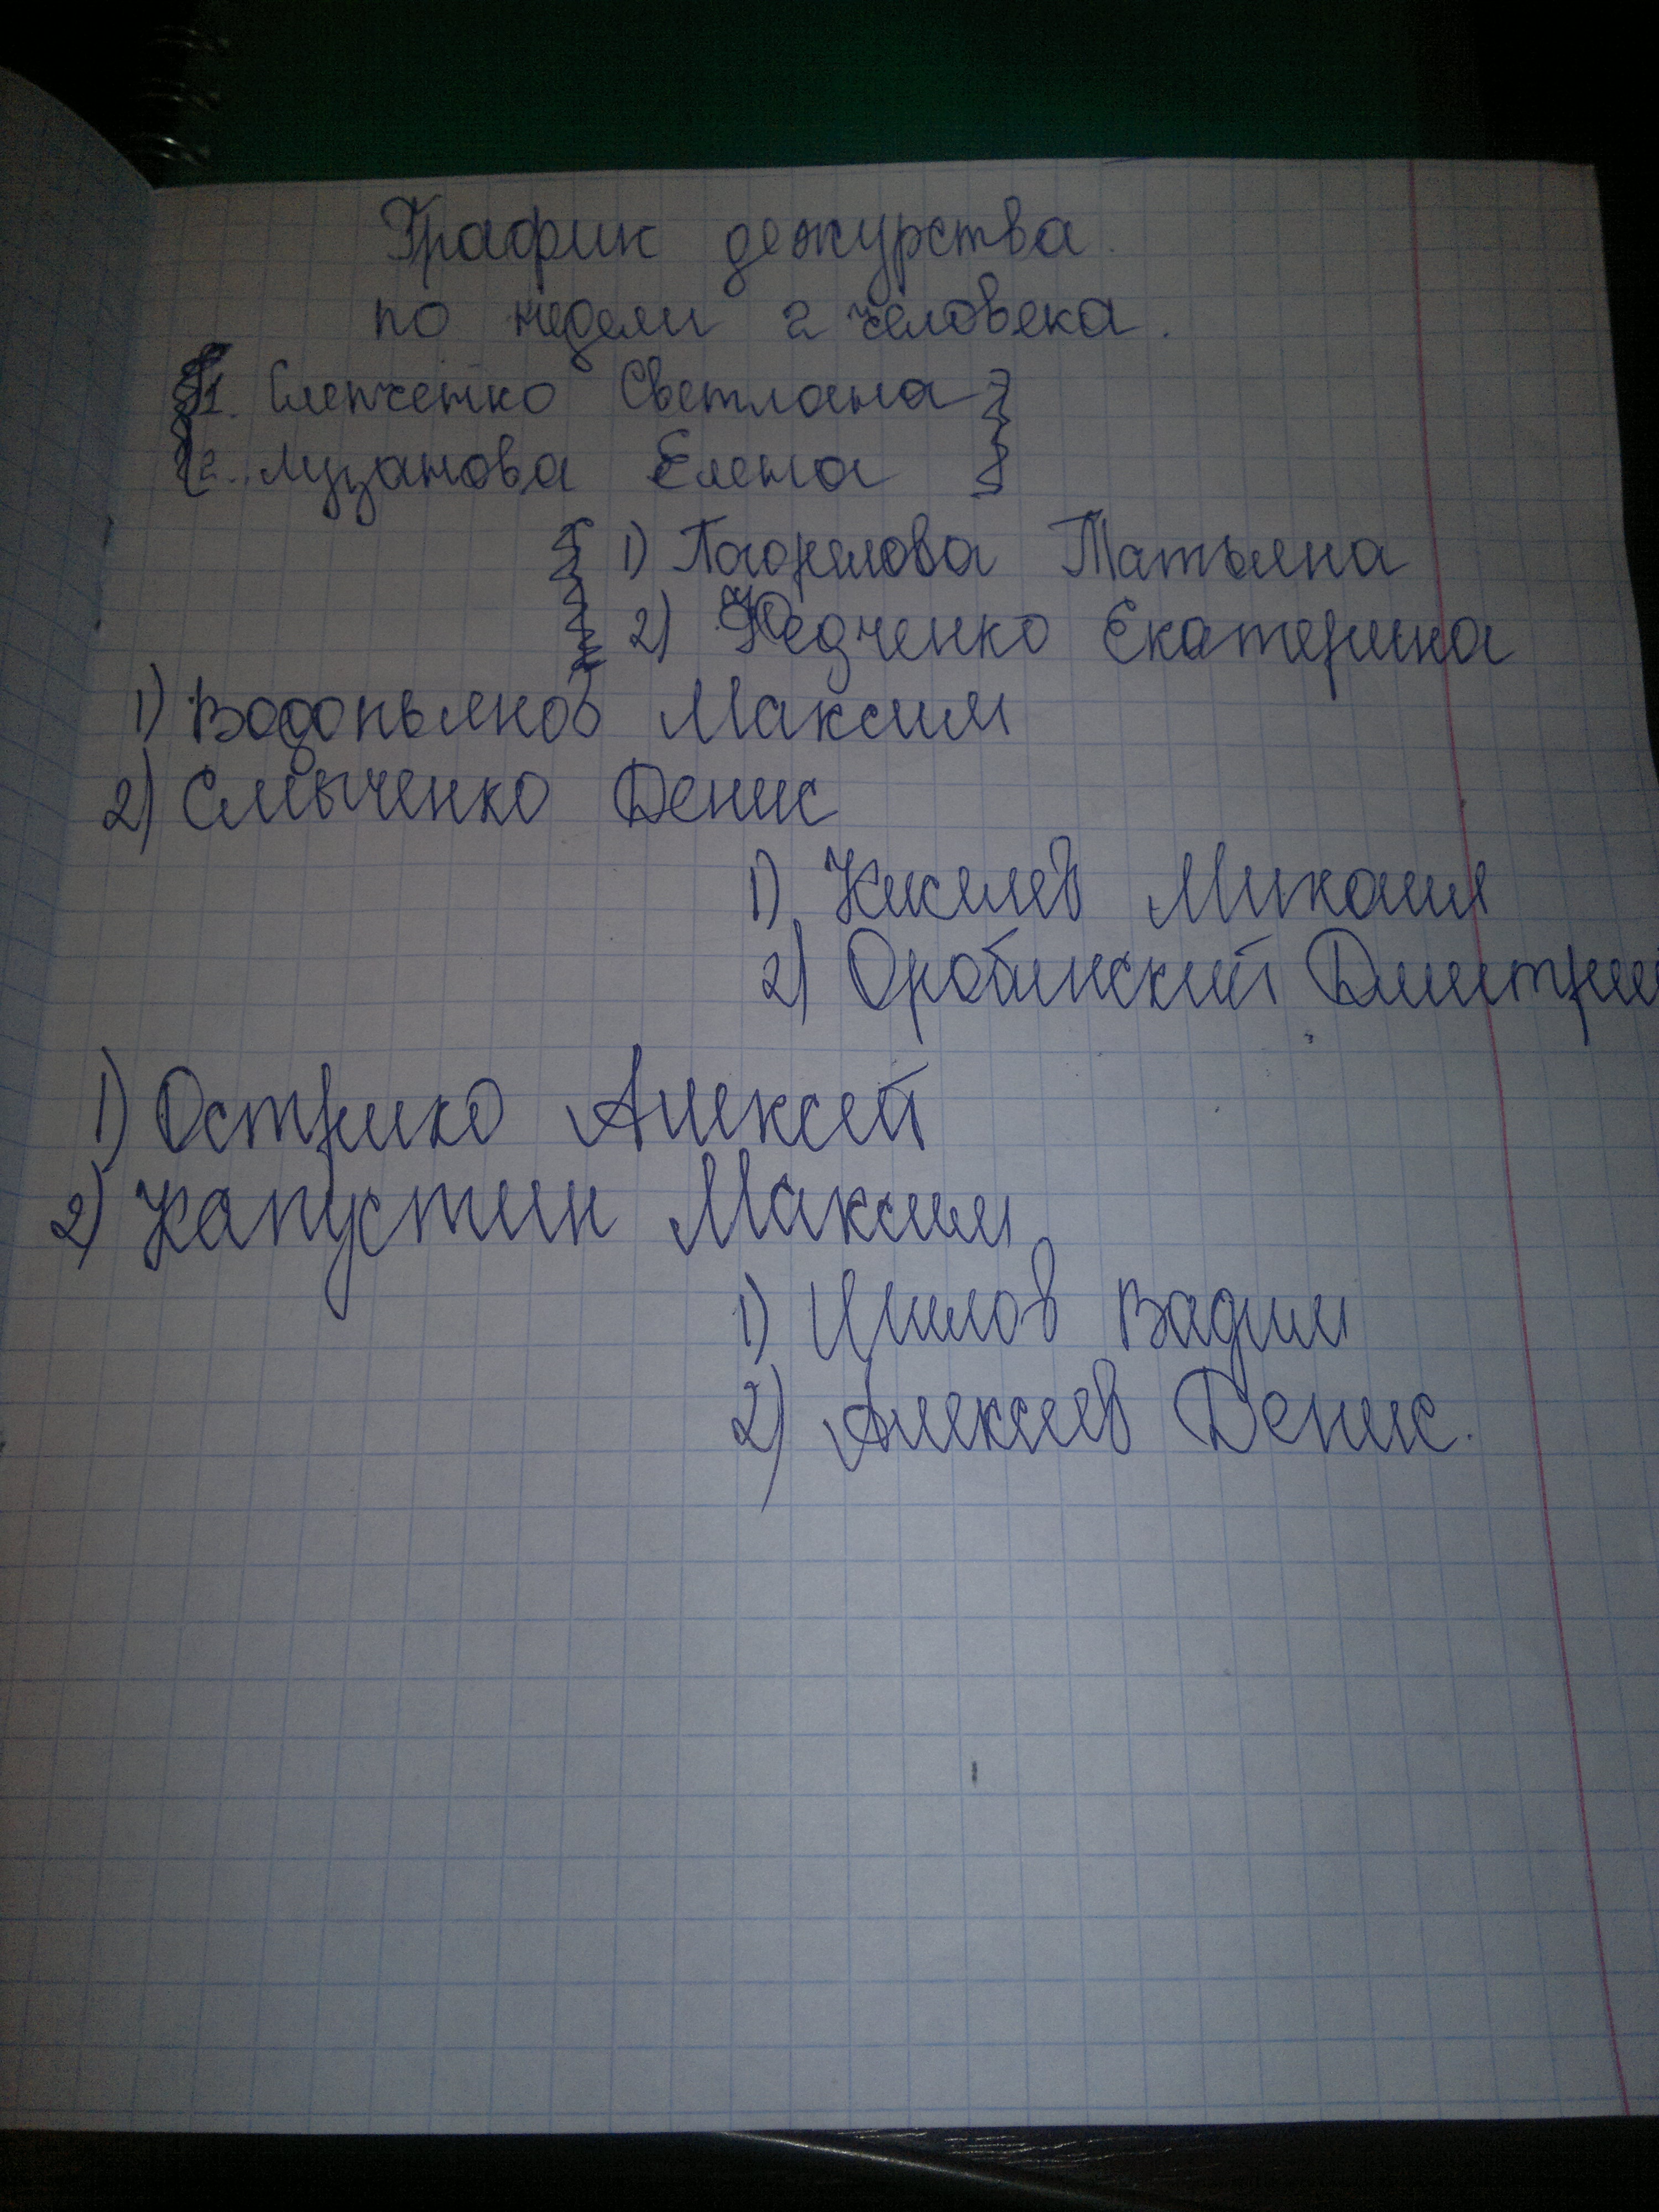 График дежурства
по недели 2 человека.
1. Слепченко Светлана
2. Лузанова Елена
1) Погорелова Татьяна
2) Федченко Екатерина
1) Водопьянов Максим
2) Смыченко Денис
1) Киселев Михаил
2) Оробинский Дмитрий
1) Острико Алексей
2) Капустин Максим
1) Шилов Вадим
2) Алексеев Денис.